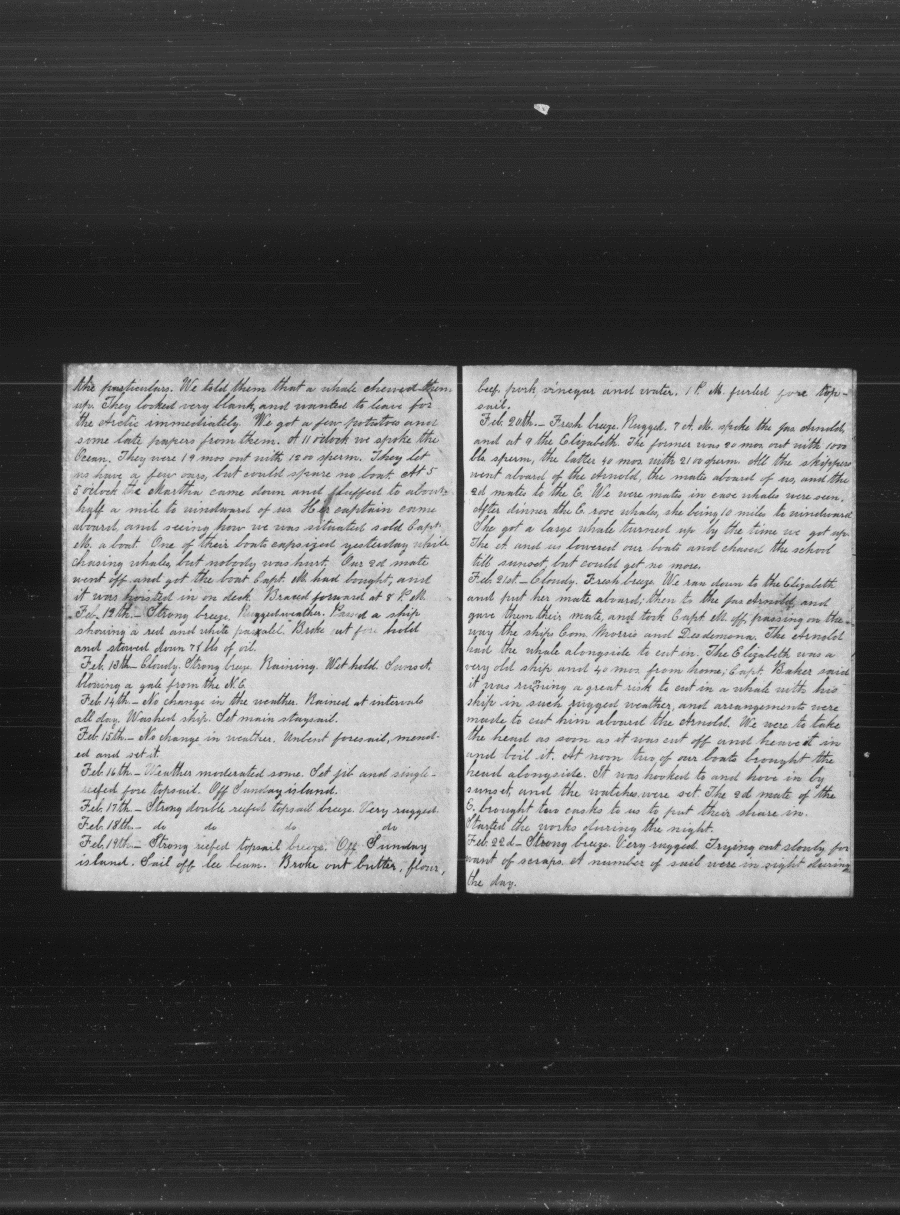 the particulars. We told them that a whale chewed them
up. They looked very blank, and wanted to leave for
the Arctic immediately. We got a few potatoes and
some late papers from them. At 11 o'clock we spoke the
Ocean. They were 19 mos out with 1200 sperm. They let
us have a few oars, but could spare no boat. At 5
5 o'clock the Martha came down and fluffed to about
half a mile to windward of us. Her captain came
aboard, and seeing how we was situated sold Capt.
M. a boat. One of their boats capsized yesterday while
chasing whales, but nobody was hurt. Our 2d mate
went off and got the boat Capt. M. had bought, and
it was hoisted in on deck. Braced forward at 8 P.M.
Feb. 12th — Strong breeze. Rugged weather. Passed a ship
showing a red and white Broke out fore hold
and stowed down 78 bls of oil.
Feb. 13th — Cloudy. Strong breeze. Raining. Wet hold. Sunset,
blowing a gale from the N.E.
Feb. 14th — No change in the weather. Rained at intervals
all day. Washed ship. Set main staysail.
Feb. 15th — No change in weather. Unbent foresail, mend-
ed and set it.
Feb. 16th — Weather moderated some. Set jib and single-
reefed fore topsail. Off Sunday island.
Feb. 17th — Strong double reefed topsail breeze. Very rugged.
Feb. 18th — do do do do
Feb. 19th — Strong reefed topsail breeze. Off Sunday
island. Sail off lee beam. Broke out butter, flour,
beef, pork vinegar and water. 1 P.M. furled fore top-
sail.
Feb. 20th — Fresh breeze. Rugged. 7 A.M. spoke the Jas Arnold,
and at 9 the Elizabeth. The former was 20 mos. out with 1000
bls sperm, the latter 40 mos. with 2100 sperm. All the skippers
went aboard of the Arnold, the mates aboard of us, and the
2d mates to the E. We were mates in case whales were seen.
After dinner the E. rose whales, she being 10 miles to windward.
She got a large whale turned up by the time we got up.
The A and us lowered our boats and chased the school
till sunset, but could get no more.
Feb. 21st — Cloudy. Fresh breeze. We ran down to the Elizabeth
and put her mate aboard; then to the Jas Arnold, and
gave them their mate, and took Capt. M. off, passing on the
way the ships Com. Morris and Desdemona. The Arnold
had the whale alongside to cut in. The Elizabeth was a
very old ship and 40 mos. from home; Capt. Baker said
it was running a great risk to cut in a whale with his
ship in such rugged weather, and arrangements were
made to cut him aboard the Arnold. We were to take
the head as soon as it was cut off and heave it in
and boil it. At noon two of our boats brought the
head alongside. It was hooked to and hove in by
sunset, and the watches were set. The 2d mate of the
E. brought two casks to us to put their share in.
Started the works during the night.
Feb. 22d — Strong breeze. Very rugged. Trying out slowly for
want of scraps. A number of sail were in sight during
the day.